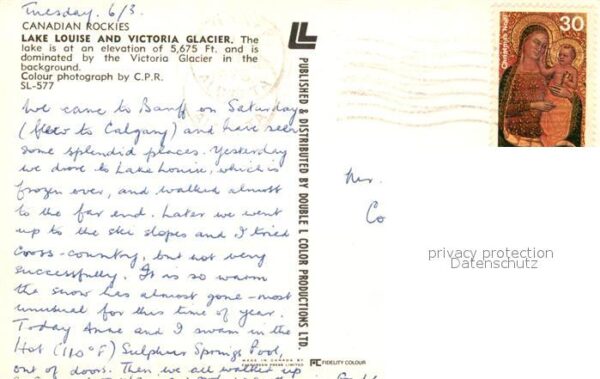 Tuesday. 6/3.
CANADIAN ROCKIES
LAKE LOUISE AND VICTORIA GLACIER. The
lake is at an elevation of 5,675 Ft. and is
dominated by the Victoria Glacier in the
background.
Colour photograph by C.P.R.
SL-577
We came to Banff on Saturday
(flew to Calgary) and have seen
some splendid places. Yesterday
we drove to Lake Louise, which is
frozen over, and walked almost
to the far end. Later we went
up to the ski slopes and I tried
cross-country, but not very
successfully. It is so warm
the snow has almost gone - most
unusual for this time of year.
Today Anne and I swam in the
Hot (110°F) Sulphur Springs Pool,
out of doors. Then we all walked up
LL
PUBLISHED & DISTRIBUTED BY DOUBLE L COLOR PRODUCTIONS LTD.
MADE IN CANADA BY
EVERGREEN PRESS LIMITED
FC FIDELITY COLOUR
Christmas Noël
30
Mrs.
Co
privacy protection
Datenschutz